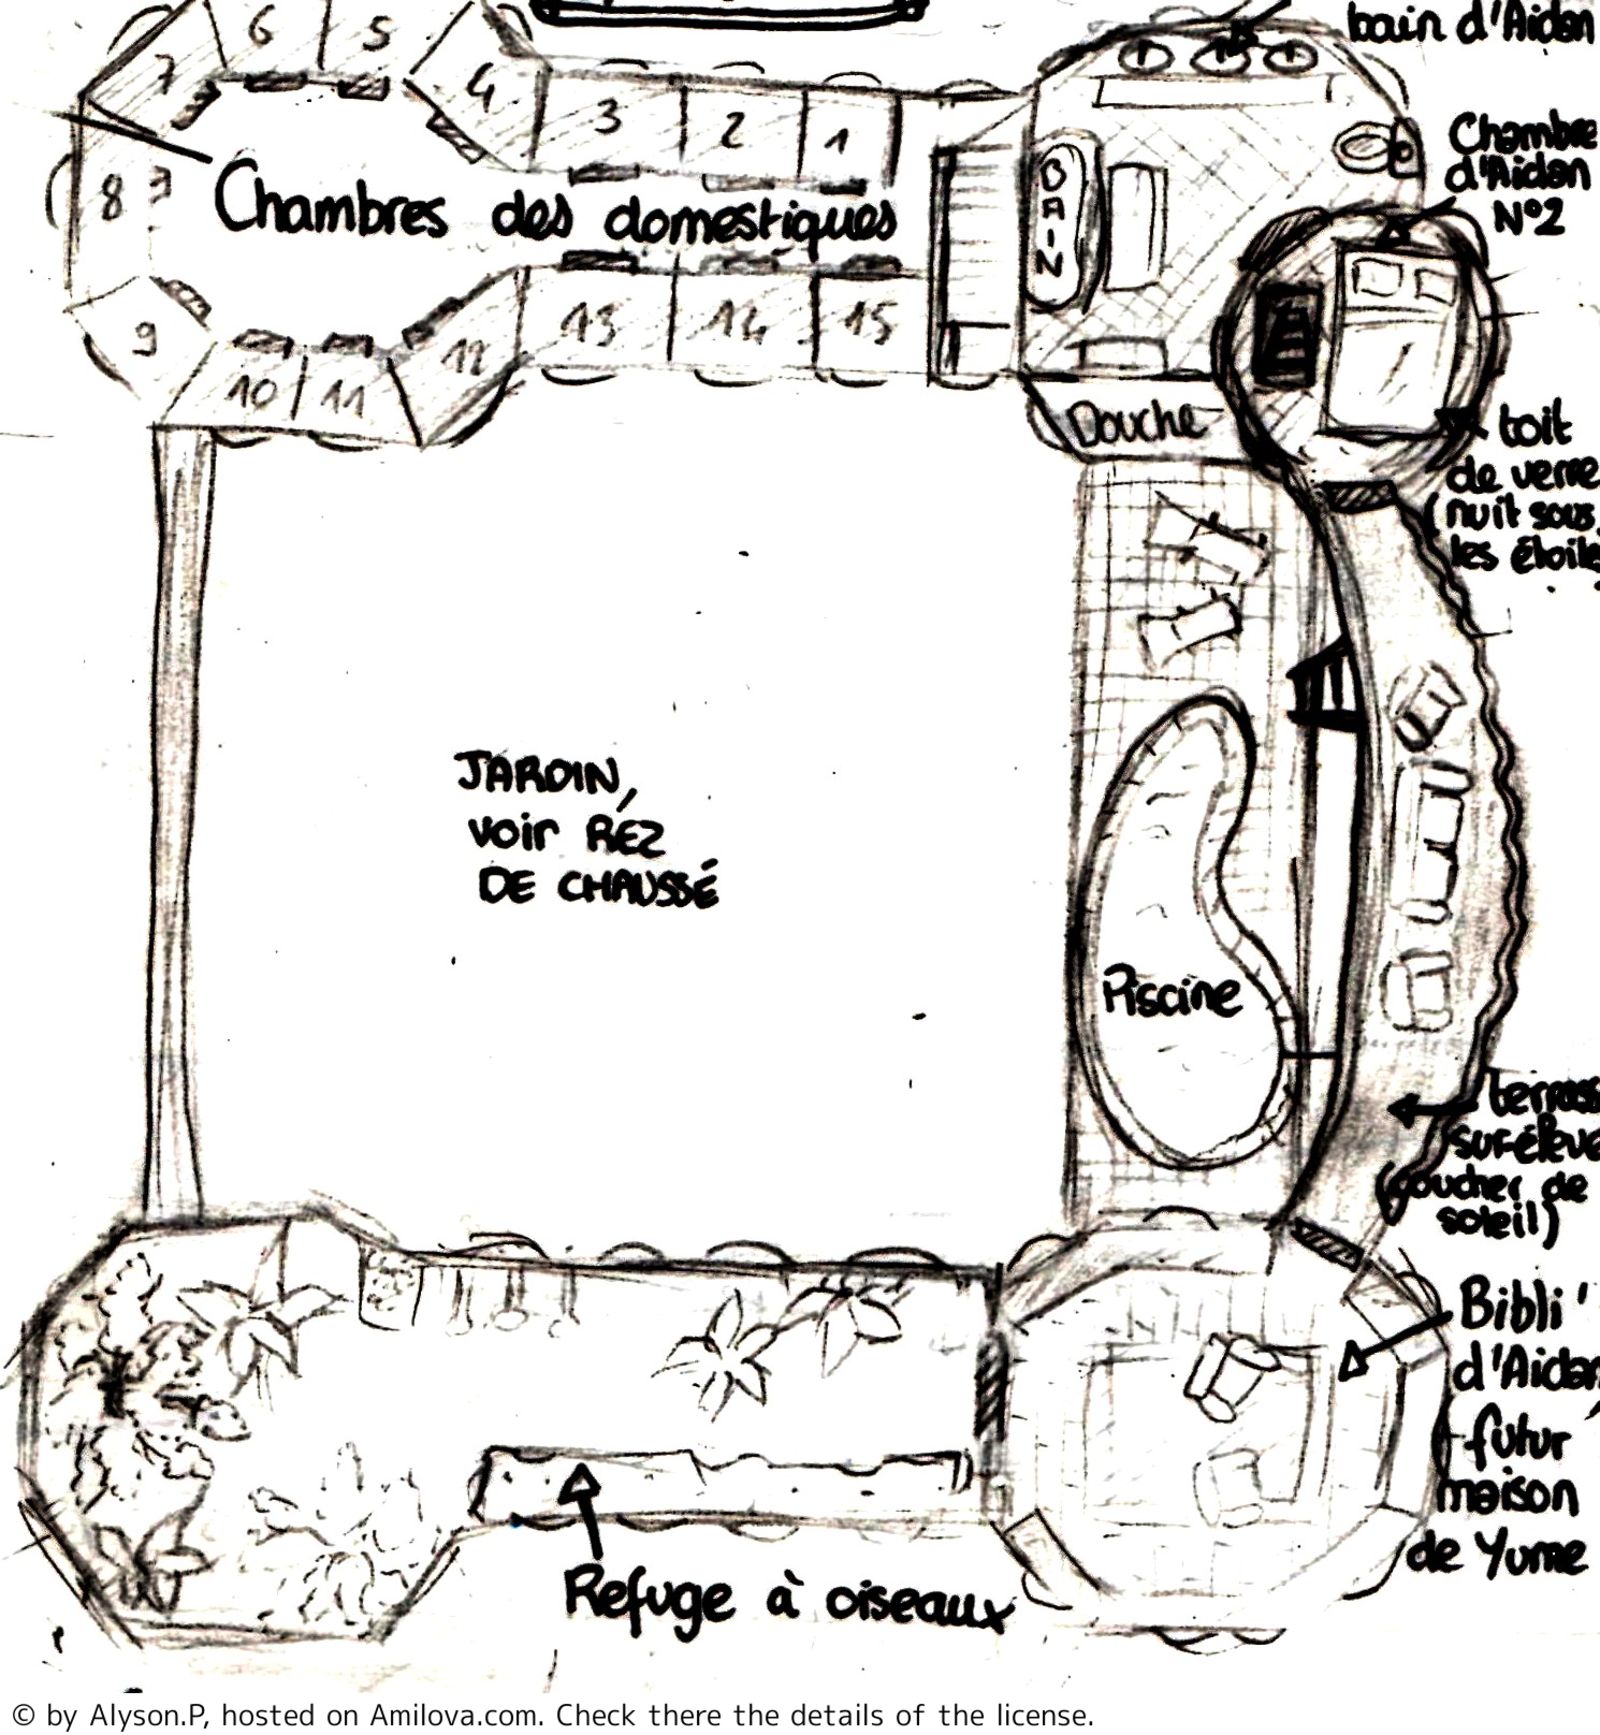 bain d'Aidan
6
5
7
4
3
2
1
Chambre
d'Aidan
N°2
8
Chambres des domestiques
BAIN
9
10
11
12
13
14
15
Douche
toit
de verre
(nuit sous
les étoile
JARDIN,
voir REZ
DE CHAUSSÉ
Piscine
terrass
surélevé
(coucher de
soleil)
Bibli'
d'Aidan
+ futur
maison
de Yume
Refuge à oiseaux
© by Alyson.P, hosted on Amilova.com. Check there the details of the license.